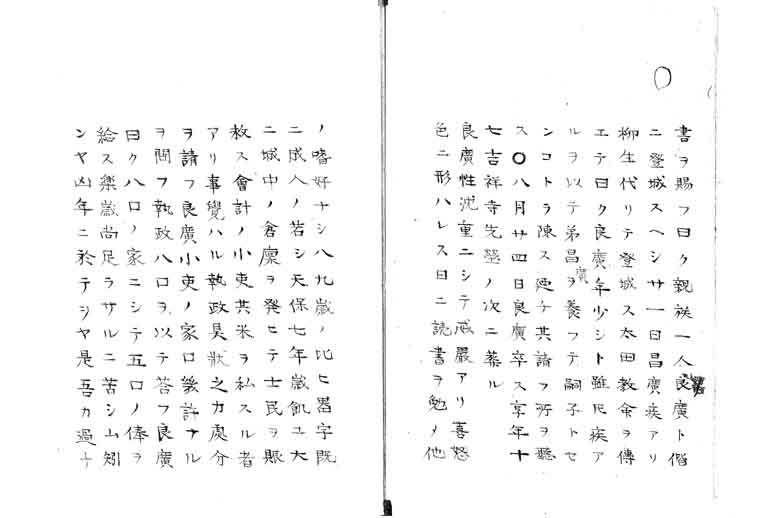 書ヲ賜フ曰ク親族一人良廣ト偕
ニ登城スヘシサ一日昌廣疾アリ
柳生代リテ登城ス太田教命ヲ傳
エテ曰ク良廣年少シト雖𪜈疾ア
ルヲ以テ弟昌廣ヲ養フテ嗣子トセ
ンコトヲ陳ス廼チ其請フ所ヲ聽
ス〇八月廿四日良廣卒ス享年十
七吉祥寺先塋ノ次ニ葬ル
良廣性沈重ニシテ威嚴アリ喜怒
色ニ形ハレス日ニ読書ヲ勉メ他
ノ嗜好ナシ八九歳ノ比ヒ噐字既
ニ成人ノ若シ天保七年歳飢ユ大
ニ城中ノ倉廩ヲ発ヒテ士民ヲ賑
救ス會計ノ小吏其米ヲ私スル者
アリ事覺ハル執政具狀之カ處分
ヲ請フ良廣小吏ノ家口幾許ナル
ヲ問フ執政八口ヲ以テ答フ良廣
曰ク八口ノ家ニシテ五口ノ俸ヲ
給ス樂歳尚足ラサルニ苦シム矧
ンヤ凶年ニ於テヲヤ是吾カ過ナ